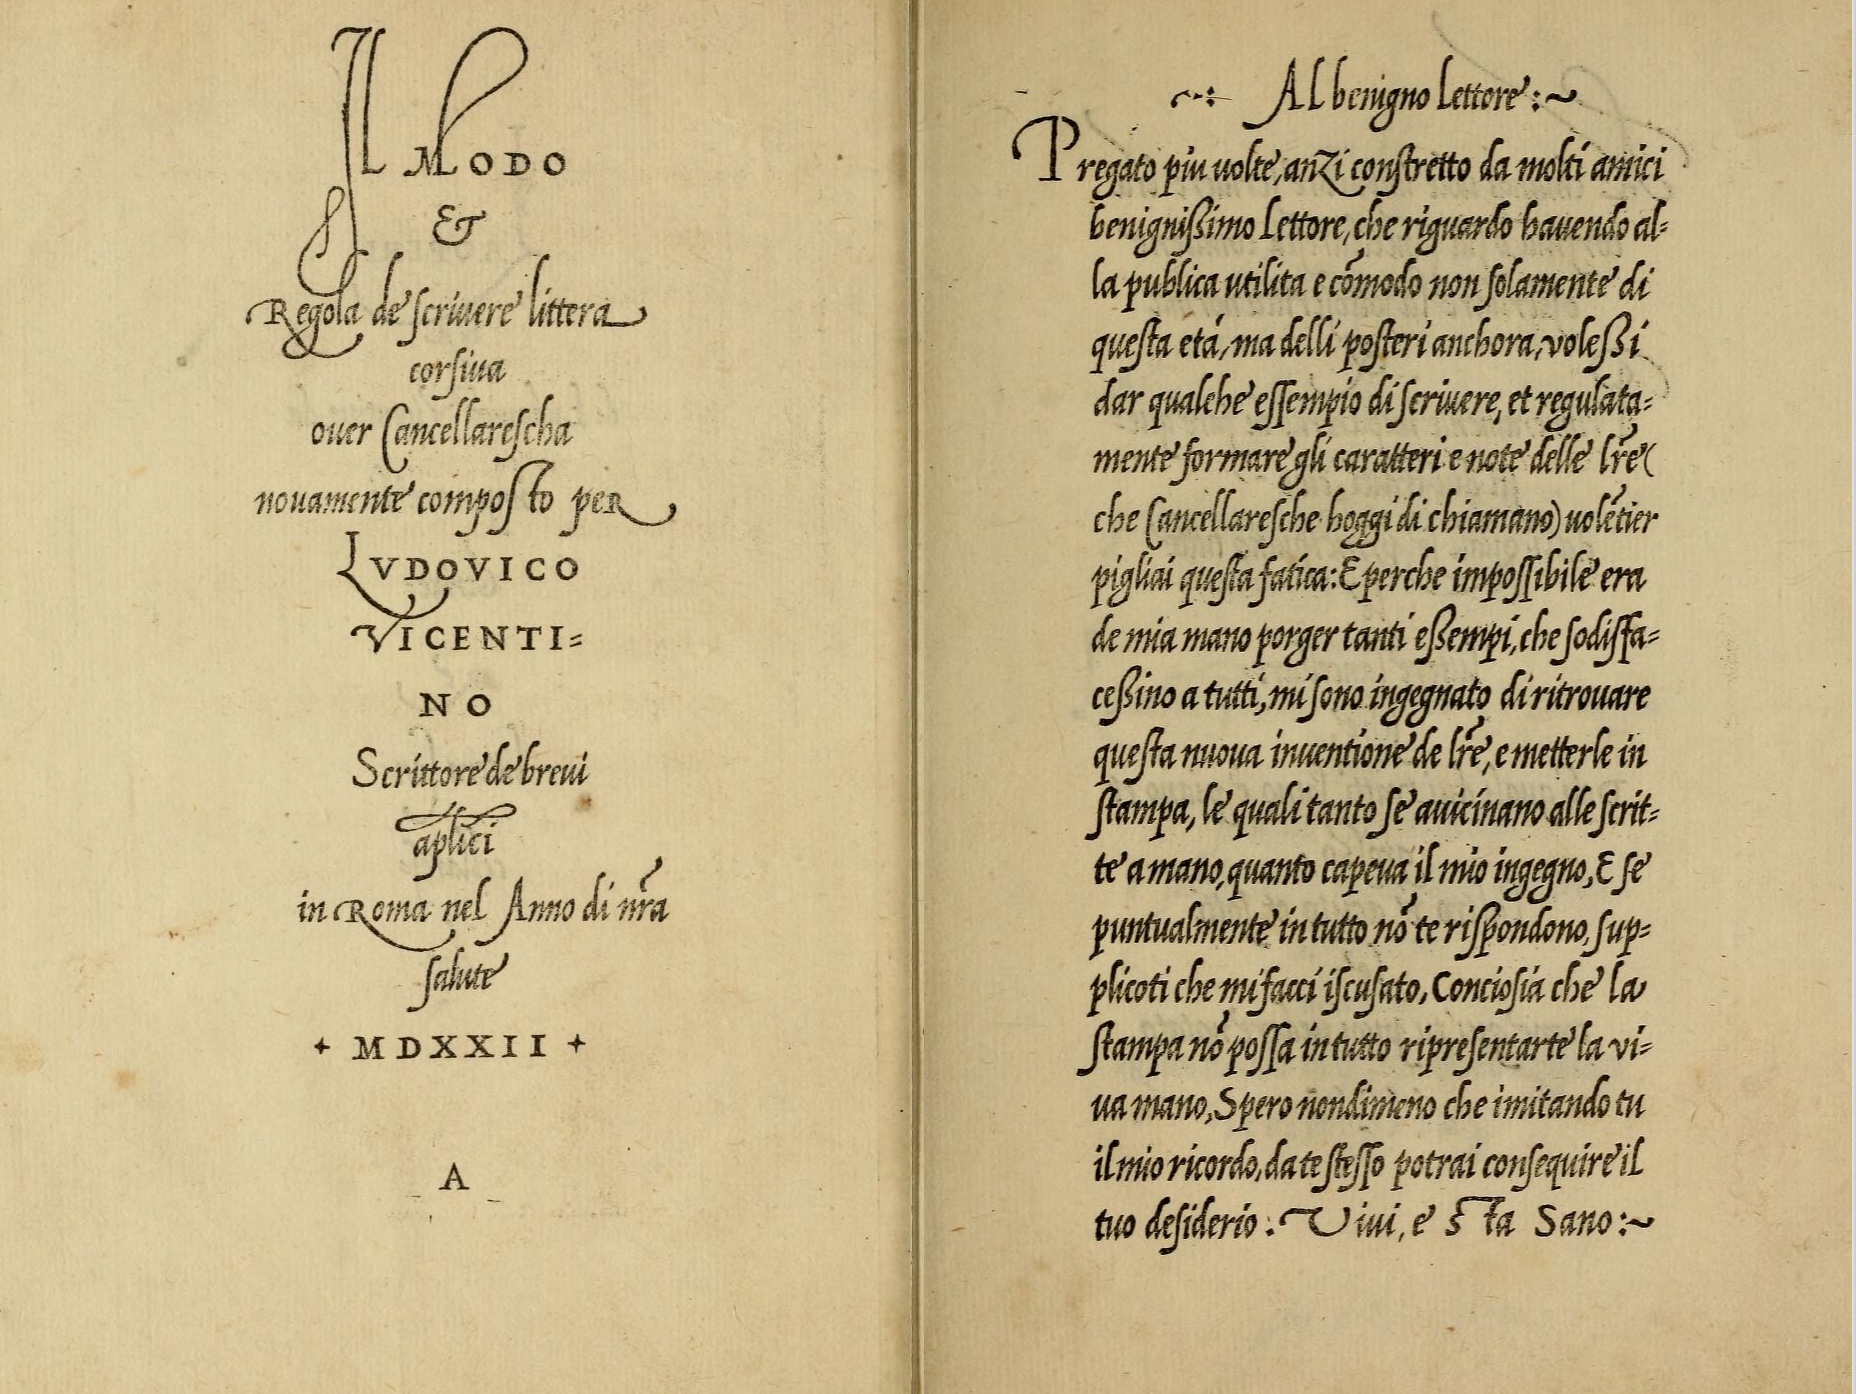 Il Modo
&
Regola de scriuere littera
corsiua
ouer Cancellarescha
nouamente composto per
LVDOVICO
VICENTI=
NO
Scrittore de breui
aplici
in Roma nel Anno di nr̃a
salute
+ MDXXII +
A
Al benigno lettore :~
Pregato piu uolte, anzi constretto da molti amici
benignißimo Lettore, che riguardo hauendo al=
la publica utilita e cõmodo non solamente di
questa etá, ma delli posteri anchora, voleßi
dar qualche essempio di scriuere, et regulata=
mente formare gli caratteri e note delle lr̃e (
che Cancellaresche hoggi di chiamano) uolẽtier
pigliai questa fatica: E perche impossibile era
de mia mano porger tanti eßempi, che sodisfa=
ceßino a tutti, mi sono ingegnato di ritrouare
questa nuoua inuentione de lr̃e, e metterle in
stampa, le quali tanto se auicinano alle scrit=
te a mano, quanto capeua il mio ingegno, E se
puntualmente in tutto nõ te rispondono, sup=
plicoti che mi facci iscusato, Conciosia che la
stampa nõ possa in tutto ripresentarte la vi=
ua mano, Spero nondimeno che imitando tu
il mio ricordo, da te stesso potrai consequire il
tuo desiderio. Viui, e Sta Sano :~